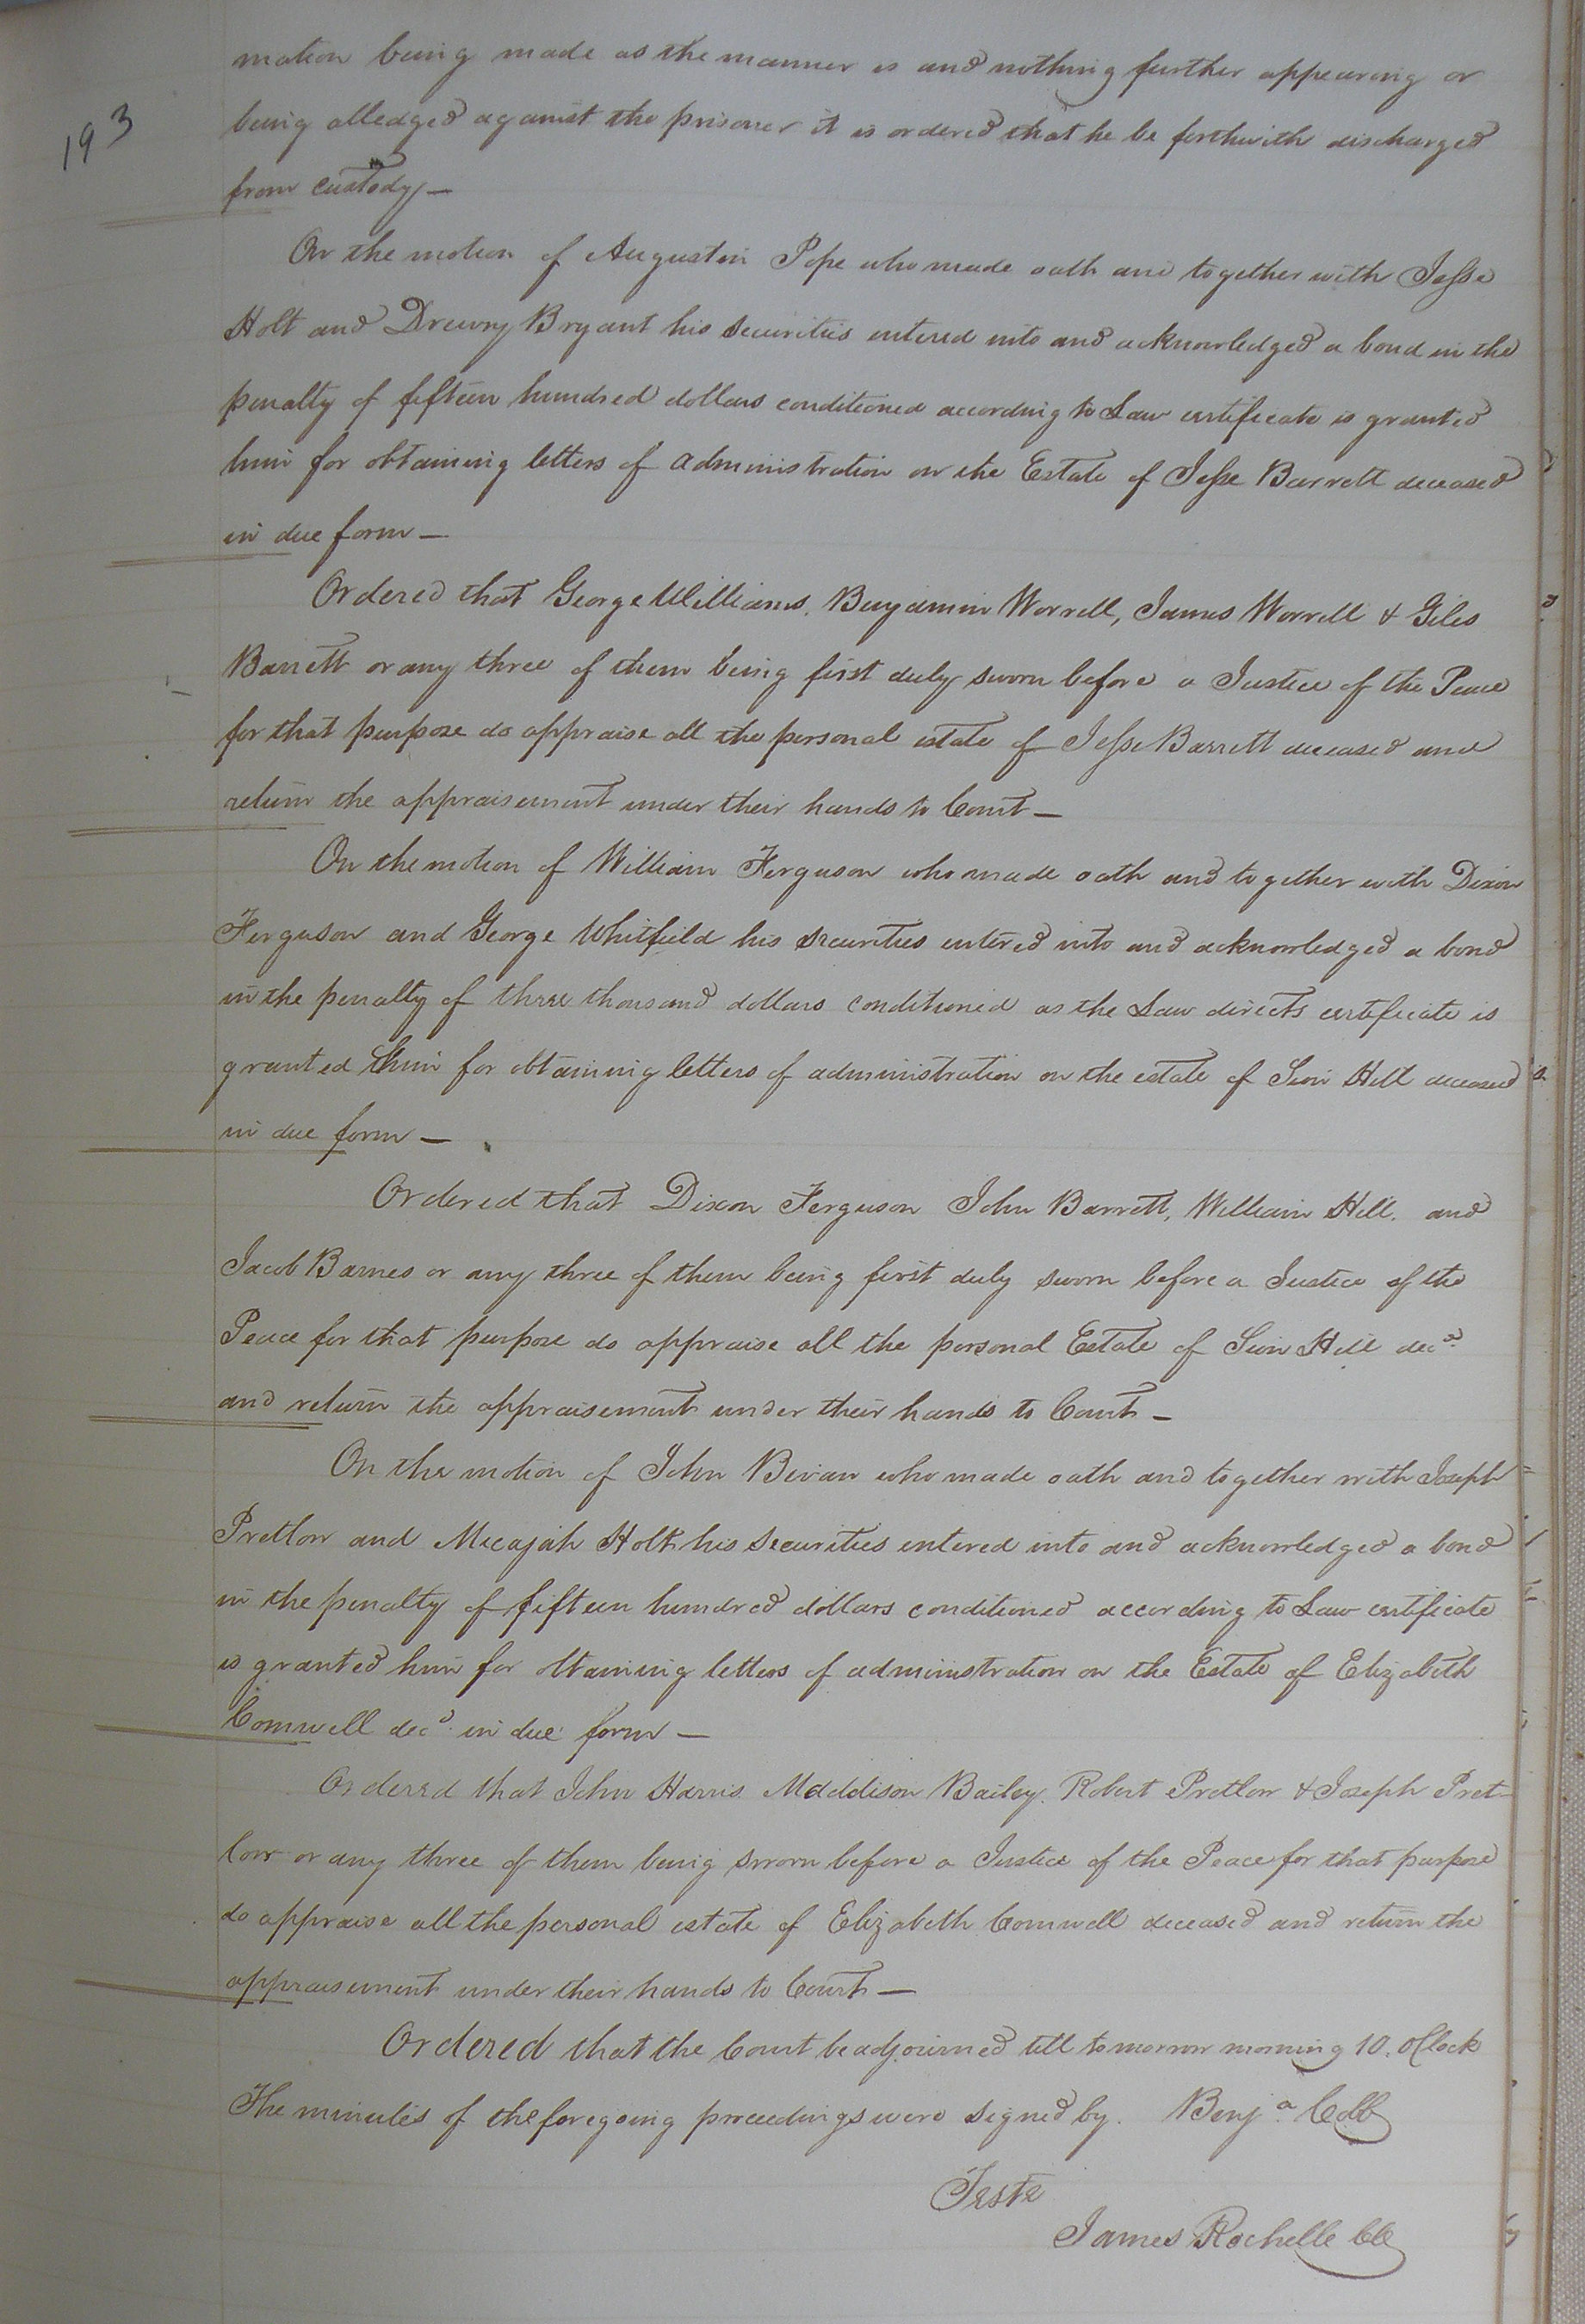 193
motion being made as the manner is and nothing further appearing or
being alledged against the prisoner it is ordered that he be forthwith discharged
from custody —
On the motion of Augustin Pope who made oath and together with Jesse
Holt and Drewry Bryant his securities entered into and acknowledged a bond in the
penalty of fifteen hundred dollars conditioned according to Law certificate is granted
him for obtaining letters of administration on the Estate of Jesse Barrett deceased
in due form —
Ordered that George Williams, Benjamin Worrell, James Worrell & Giles
Barrett or any three of them being first duly sworn before a Justice of the Peace
for that purpose do appraise all the personal estate of Jesse Barrett deceased and
return the appraisement under their hands to Court —
On the motion of William Ferguson who made oath and together with Dixon
Ferguson and George Whitfield his securities entered into and acknowledged a bond
in the penalty of three thousand dollars conditioned as the Law directs certificate is
granted him for obtaining letters of administration on the estate of Sion Hill deceased
in due form —
Ordered that Dixon Ferguson John Barrett, William Hill. and
Jacob Barnes or any three of them being first duly sworn before a Justice of the
Peace for that purpose do appraise all the personal Estate of Sion Hill decd
and return the appraisement under their hands to Court —
On the motion of John Bevan who made oath and together with Joseph
Pretlow and Micajah Holt his securities entered into and acknowledged a bond
in the penalty of fifteen hundred dollars conditioned according to Law certificate
is granted him for obtaining letters of administration on the Estate of Elizabeth
Cornwell decd in due form —
Ordered that John Harris. Maddison Bailey. Robert Pretlow & Joseph Pret-
low or any three of them being sworn before a Justice of the Peace for that purpose
do appraise all the personal estate of Elizabeth Cornwell deceased and return the
appraisement under their hands to Court —
Ordered that the Court be adjourned till tomorrow morning 10. oClock
The minutes of the foregoing proceedings were signed by. Benja. Cobb
Teste
James Rochelle CC